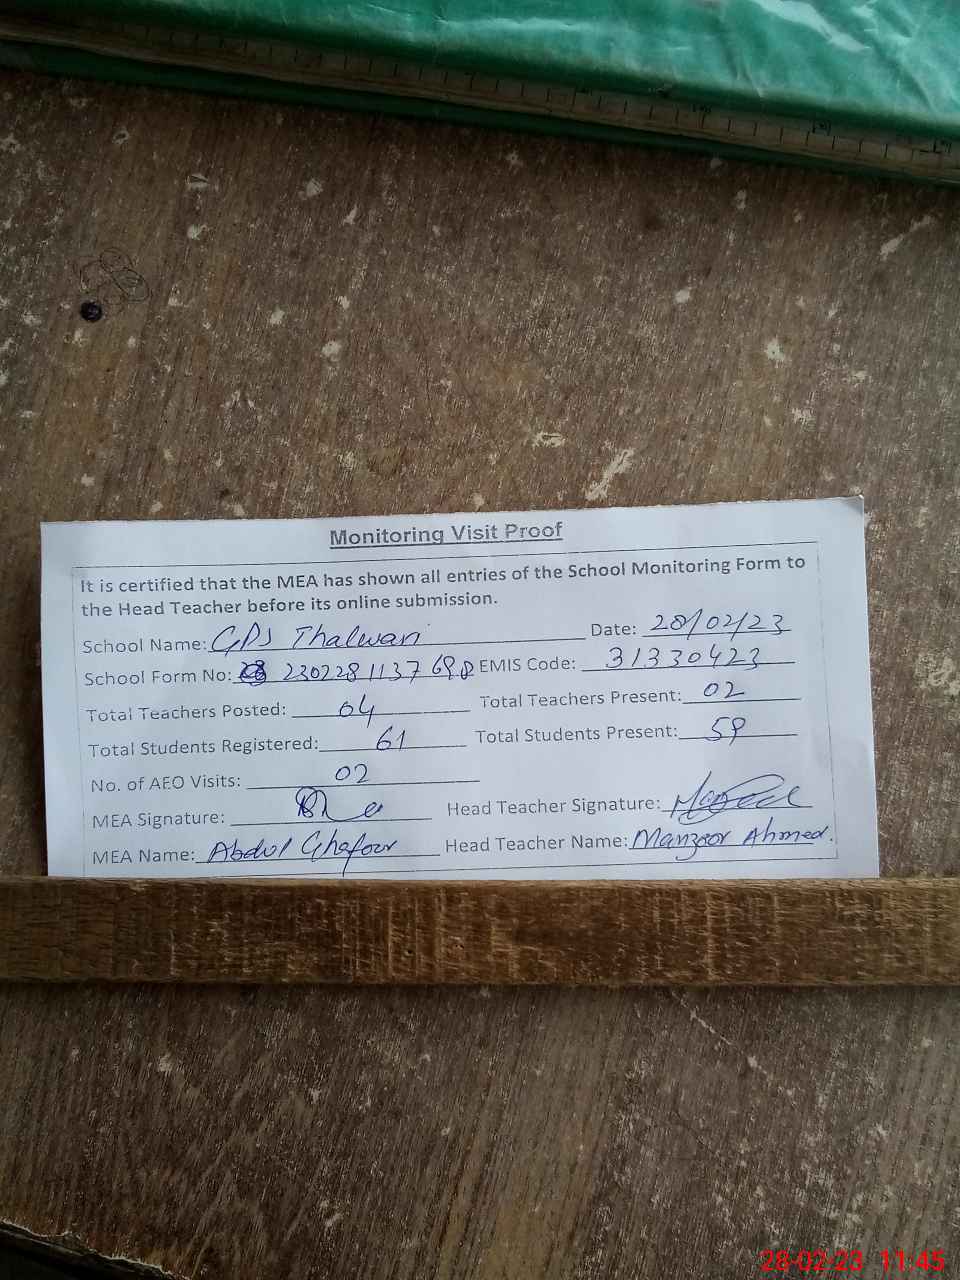 Monitoring Visit Proof
It is certified that the MEA has shown all entries of the School Monitoring Form to
the Head Teacher before its online submission.
School Name: GPS Thalwan Date: 28/02/23
School Form No: 230228113769 EMIS Code: 31330423
Total Teachers Posted: 04 Total Teachers Present: 02
Total Students Registered: 61 Total Students Present: 59
No. of AEO Visits: 02
MEA Signature: Head Teacher Signature:
MEA Name: Abdul Ghafour Head Teacher Name: Manzoor Ahmed.
28-02-23 11:45